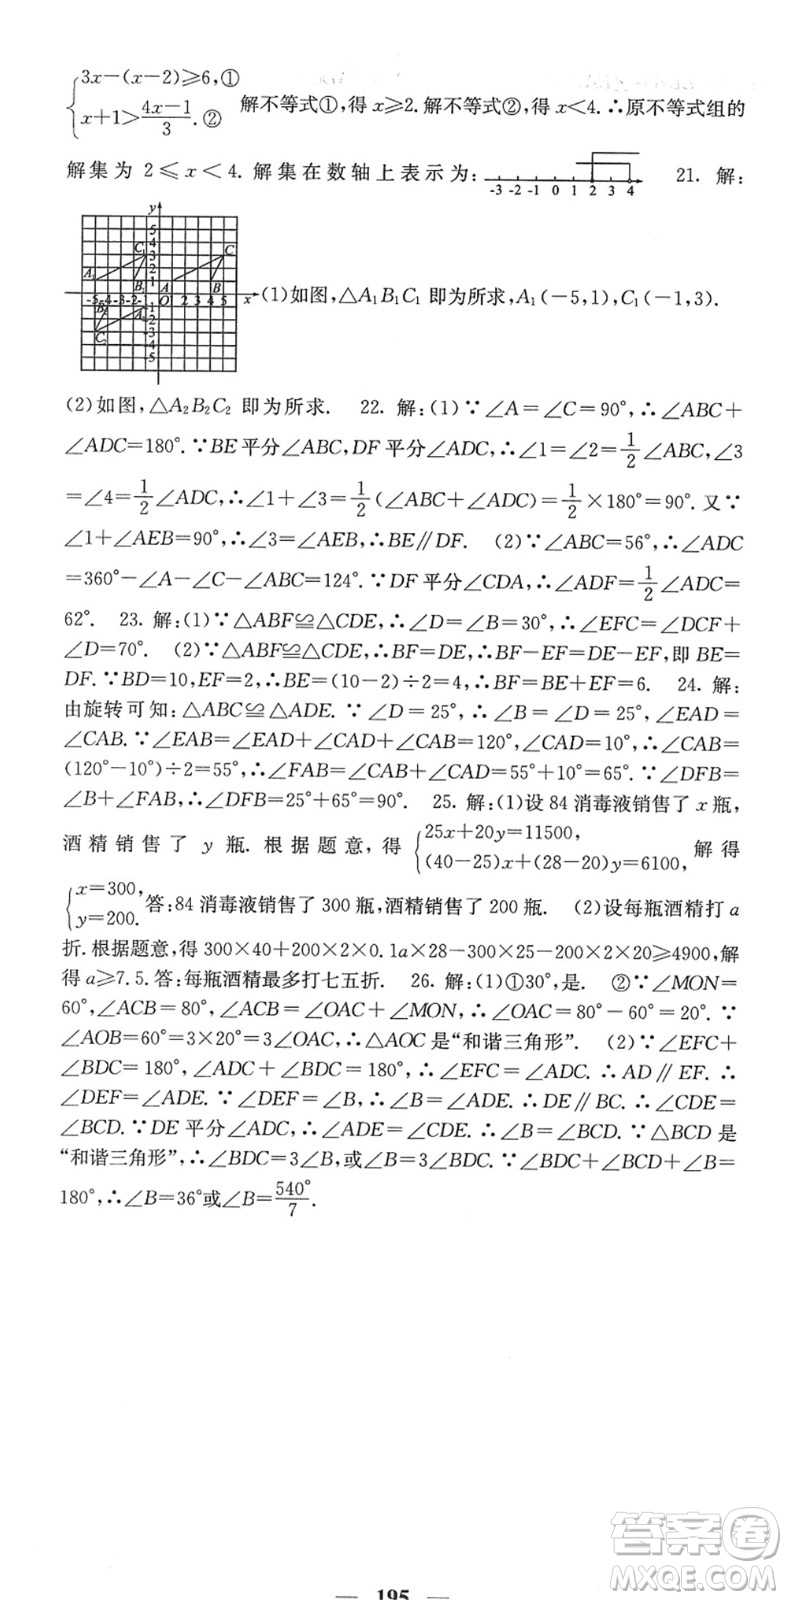 {3x-(x-2)≥6,①
x+1>\frac{4x-1}{3}.② 解不等式①,得 x≥2. 解不等式②,得 x<4. ∴原不等式组的
解集为 2≤x<4. 解集在数轴上表示为: -3 -2 -1 0 1 2 3 4 21. 解:
(1)如图,△A₁B₁C₁ 即为所求,A₁(-5,1),C₁(-1,3).
(2)如图,△A₂B₂C₂ 即为所求. 22. 解:(1)∵∠A=∠C=90°,∴∠ABC+
∠ADC=180°.∵BE平分∠ABC,DF平分∠ADC,∴∠1=∠2=\frac{1}{2}∠ABC,∠3
=∠4=\frac{1}{2}∠ADC,∴∠1+∠3=\frac{1}{2}(∠ABC+∠ADC)=\frac{1}{2}×180°=90°. 又∵
∠1+∠AEB=90°,∴∠3=∠AEB,∴BE∥DF. (2)∵∠ABC=56°,∴∠ADC
=360°-∠A-∠C-∠ABC=124°.∵DF平分∠CDA,∴∠ADF=\frac{1}{2}∠ADC=
62°. 23. 解:(1)∵△ABF≌△CDE,∴∠D=∠B=30°,∴∠EFC=∠DCF+
∠D=70°. (2)∵△ABF≌△CDE,∴BF=DE,∴BF-EF=DE-EF,即 BE=
DF.∵BD=10,EF=2,∴BE=(10-2)÷2=4,∴BF=BE+EF=6. 24. 解:
由旋转可知:△ABC≌△ADE.∵∠D=25°,∴∠B=∠D=25°,∠EAD=
∠CAB.∵∠EAB=∠EAD+∠CAD+∠CAB=120°,∠CAD=10°,∴∠CAB=
(120°-10°)÷2=55°,∴∠FAB=∠CAB+∠CAD=55°+10°=65°.∴∠DFB=
∠B+∠FAB,∴∠DFB=25°+65°=90°. 25. 解:(1)设84消毒液销售了 x 瓶,
酒精销售了 y 瓶. 根据题意,得 {25x+20y=11500,
(40-25)x+(28-20)y=6100, 解得
{x=300,
y=200. 答:84消毒液销售了300瓶,酒精销售了200瓶. (2)设每瓶酒精打 a
折. 根据题意,得 300×40+200×2×0.1a×28-300×25-200×2×20≥4900,解
得 a≥7.5. 答:每瓶酒精最多打七五折. 26. 解:(1)①30°,是. ②∵∠MON=
60°,∠ACB=80°,∴∠ACB=∠OAC+∠MON,∴∠OAC=80°-60°=20°.∵
∠AOB=60°=3×20°=3∠OAC,∴△AOC是“和谐三角形”. (2)∵∠EFC+
∠BDC=180°,∠ADC+∠BDC=180°,∴∠EFC=∠ADC.∴AD∥EF.∴
∠DEF=∠ADE.∵∠DEF=∠B,∴∠B=∠ADE.∴DE∥BC.∴∠CDE=
∠BCD.∵DE平分∠ADC,∴∠ADE=∠CDE.∴∠B=∠BCD.∵△BCD是
“和谐三角形”,∴∠BDC=3∠B,或∠B=3∠BDC.∵∠BDC+∠BCD+∠B=
180°,∴∠B=36°或∠B=\frac{540°}{7}.
195
答案圈
MXQE.COM